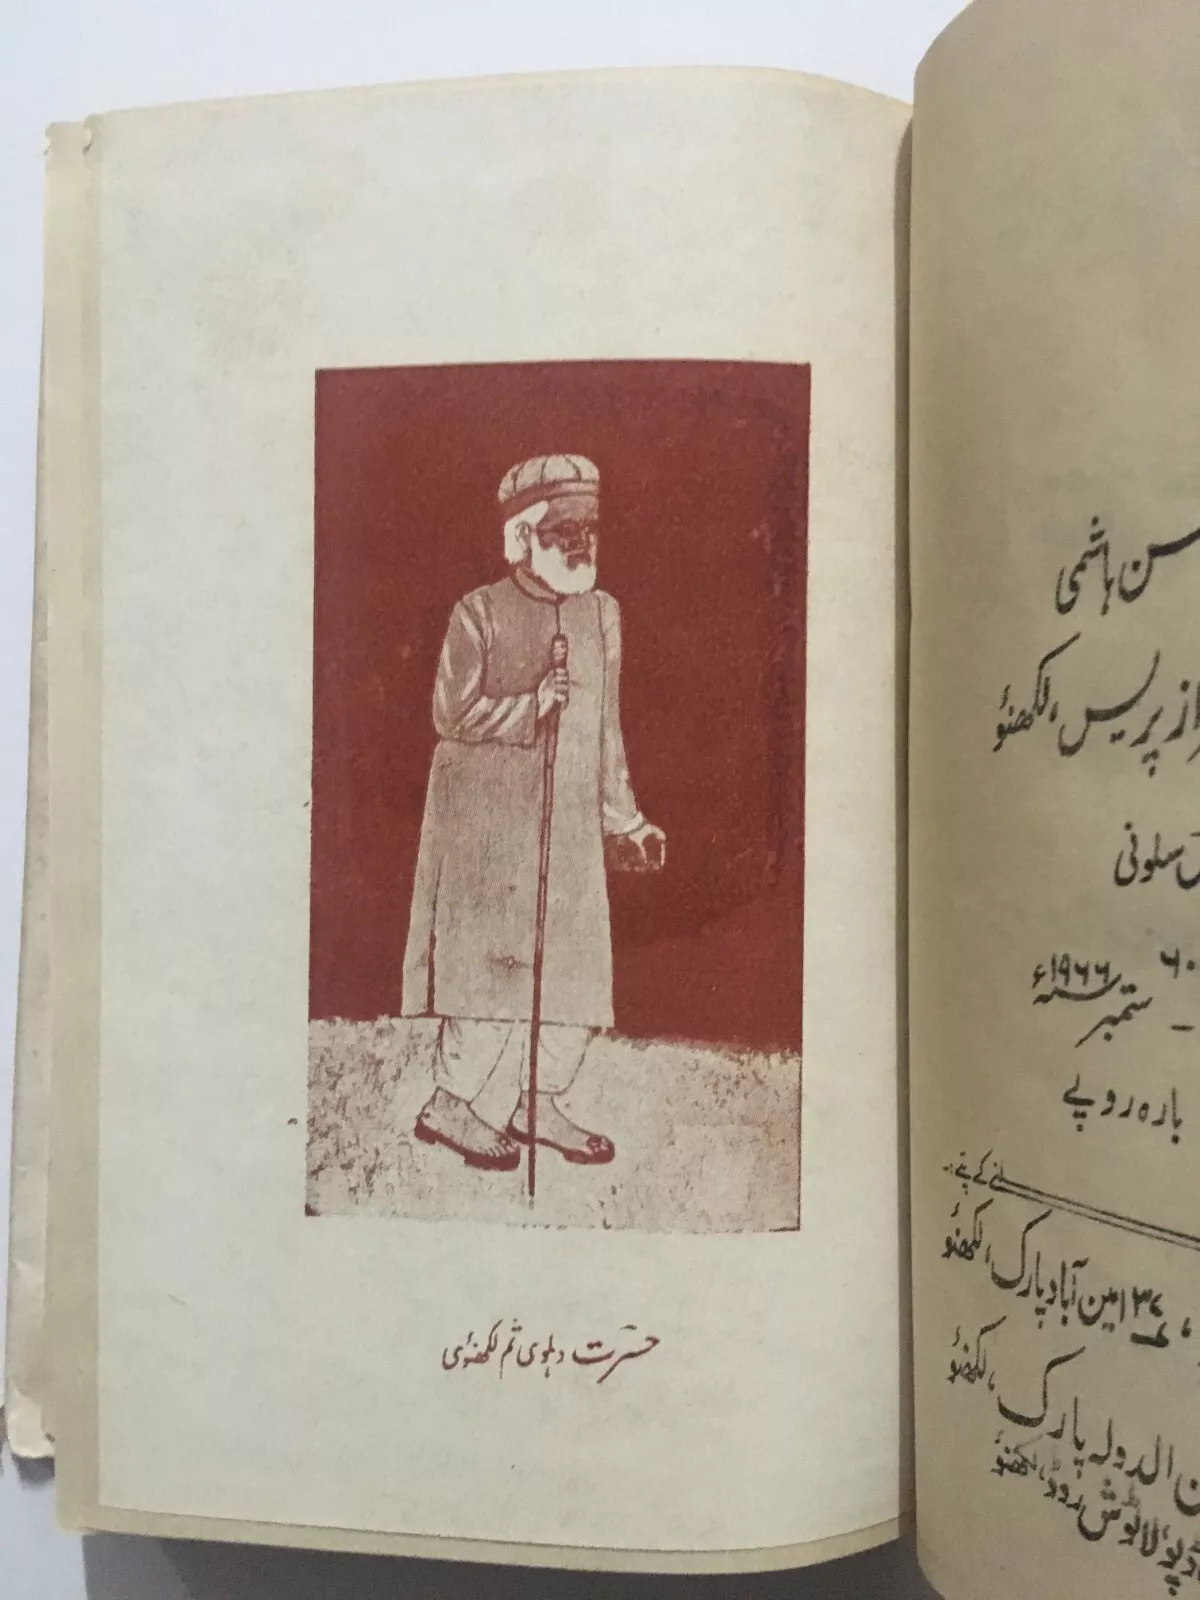 حسرت دہلوی ثم لکھنوی
ہاشمی
پریس، لکھنؤ
سلونی
۶۰
ستمبر سنہ ۱۹۶۶ء
بارہ روپے
ملنے کے پتے:
۳۷ امین آباد پارک، لکھنؤ
الدولہ پارک، لکھنؤ
لاٹوش روڈ، لکھنؤ